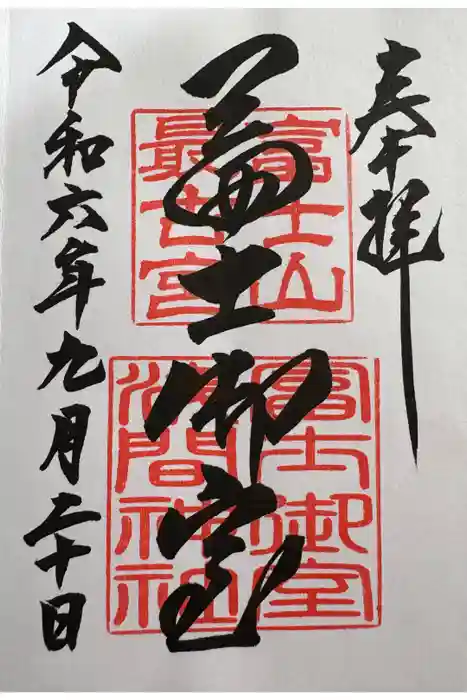 奉拝
富士山
最古宮
冨士御室
富士御室
浅間神社
令和六年九月二十日